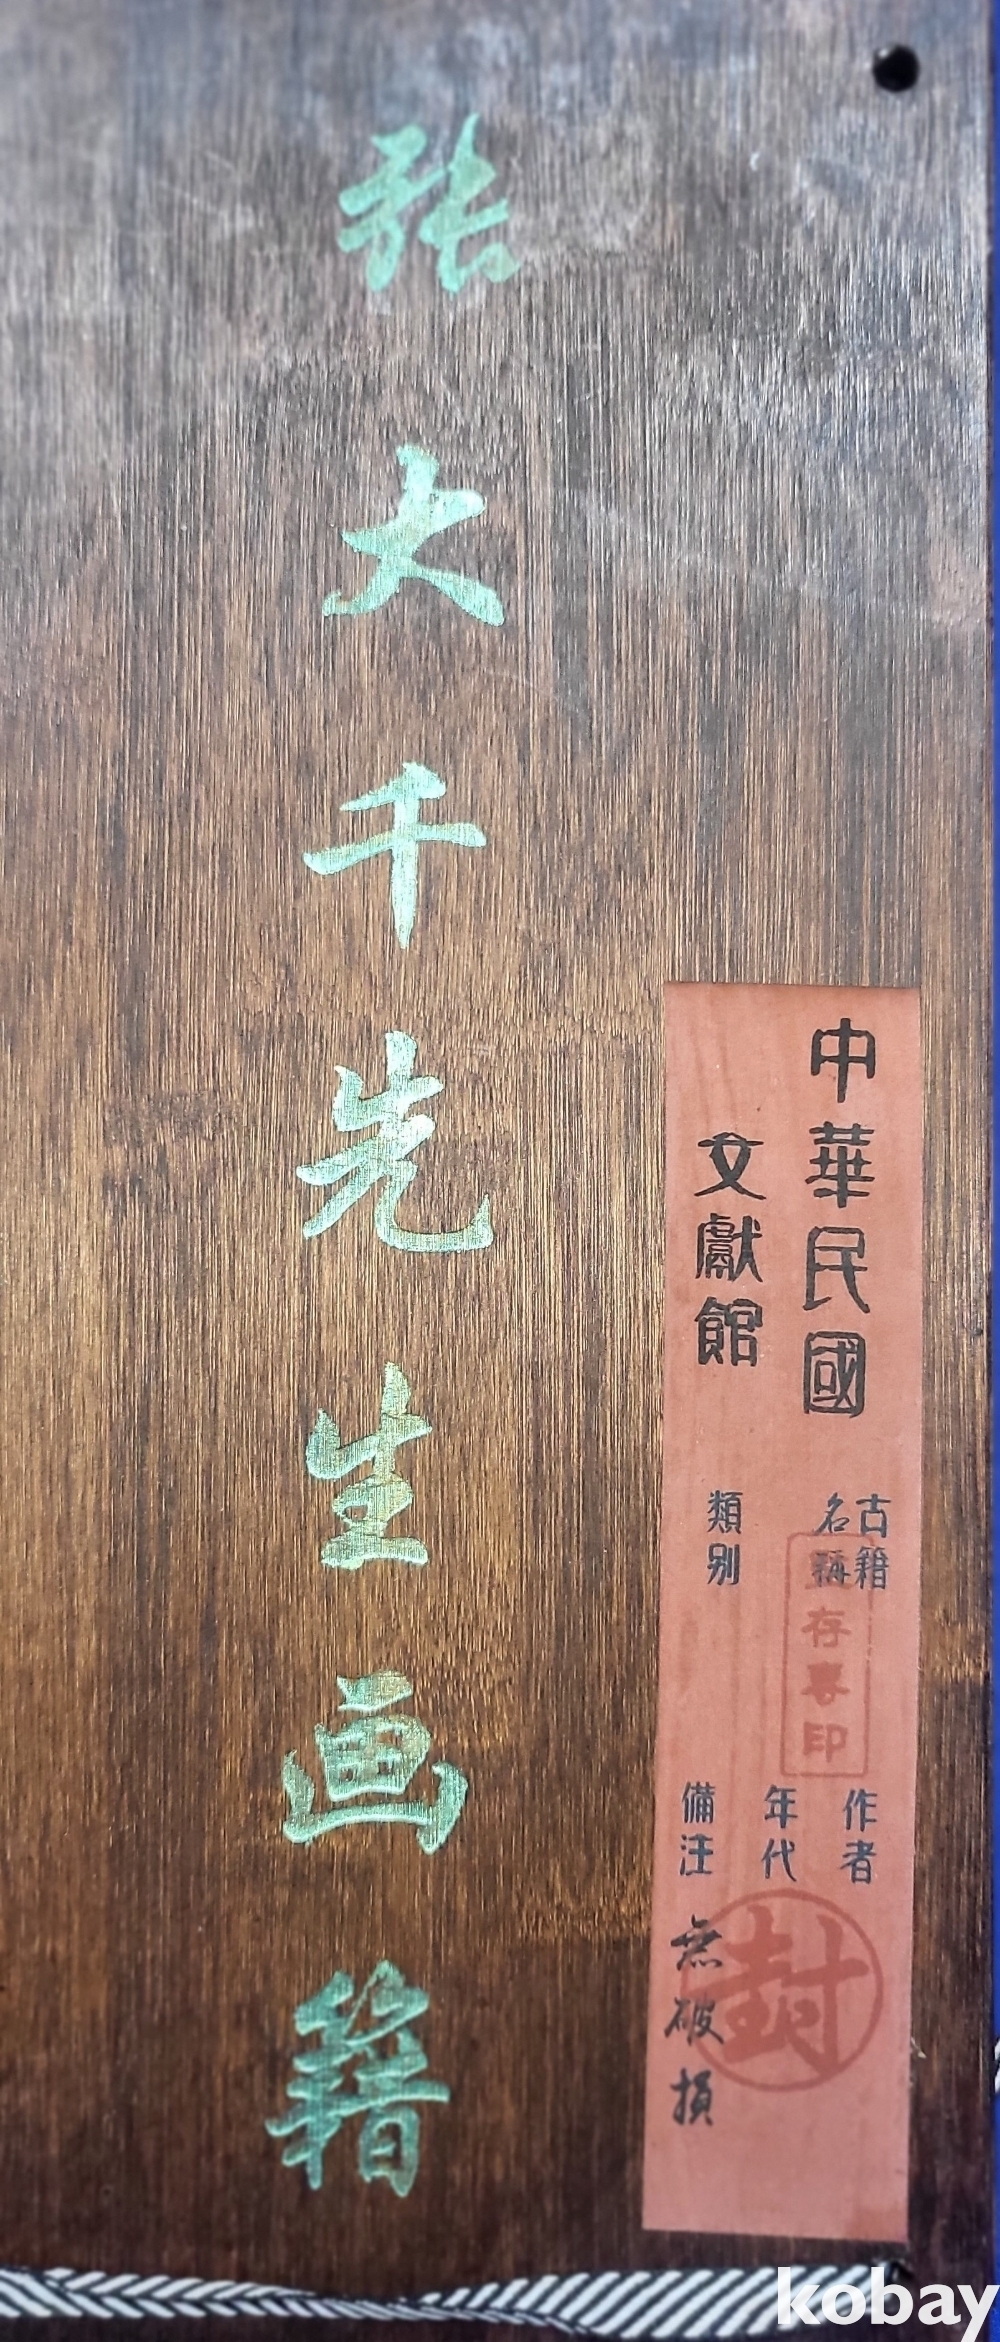 张大千先生画籍
中華民國
文獻館
古籍
名稱
類别
作者
年代
備注
無破損
存
印
封
kobay